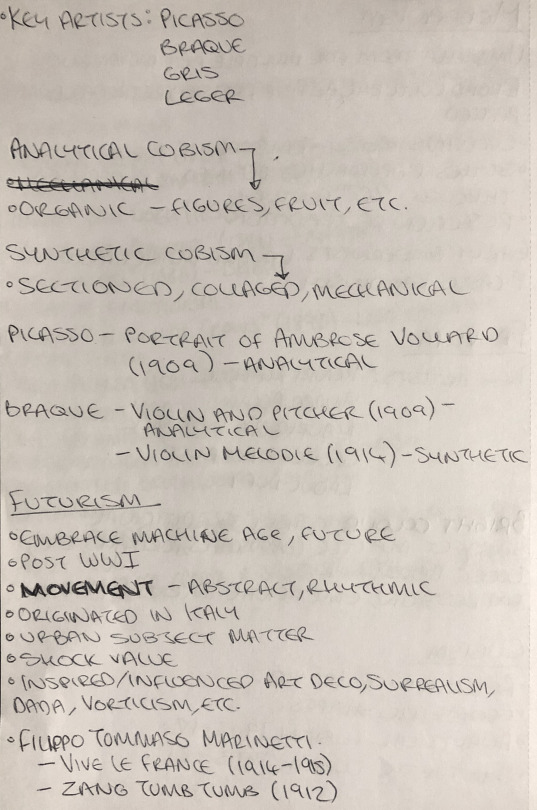 •KEY ARTISTS: PICASSO
BRAQUE
GRIS
LEGER
ANALYTICAL COBISM
•MECHANICAL
•ORGANIC - FIGURES, FRUIT, ETC.
SYNTHETIC COBISM
•SECTIONED, COLLAGED, MECHANICAL
PICASSO - PORTRAIT OF AMBROSE VOLLARD
(1909) - ANALYTICAL
BRAQUE - VIOLIN AND PITCHER (1909) -
ANALYTICAL
- VIOLIN MELODIE (1914) - SYNTHETIC
FUTURISM
•EMBRACE MACHINE AGE, FUTURE
•POST WWI
•MOVEMENT - ABSTRACT, RHYTHMIC
•ORIGINATED IN ITALY
•URBAN SUBJECT MATTER
•SHOCK VALUE
•INSPIRED/INFLUENCED ART DECO, SURREALISM,
DADA, VORTICISM, ETC.
•FILIPPO TOMMASO MARINETTI.
- VIVE LE FRANCE (1914-1915)
- ZANG TUMB TUMB (1912)